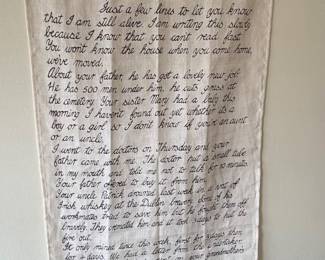 Just a few lines to let you know
that I am still alive. I am writing this slowly
because I know that you can't read fast.
You wont know the house when you come home,
we've moved.
About your father, he has got a lovely new job.
He has 500 men under him, he cuts grass at
the cemetery. Your sister Mary had a baby this
morning. I haven't found out yet whether it's a
boy or a girl so I don't know if you're an aunt
or an uncle.
I went to the doctors on Thursday and your
father came with me. The doctor put a small tube
in my mouth and told me not to talk for 10 minutes.
Your father offered to buy it from him.
Your uncle Patrick drowned last week in a vat of
Irish whiskey at the Dublin Brewery. Some of his
workmates tried to save him but he fought them off
bravely. They cremated him and it took 3 days to put the
fire out.
It only rained twice this week, first for 3 days then
for 4 days. We had a letter from the undertaker.
your grandmothers